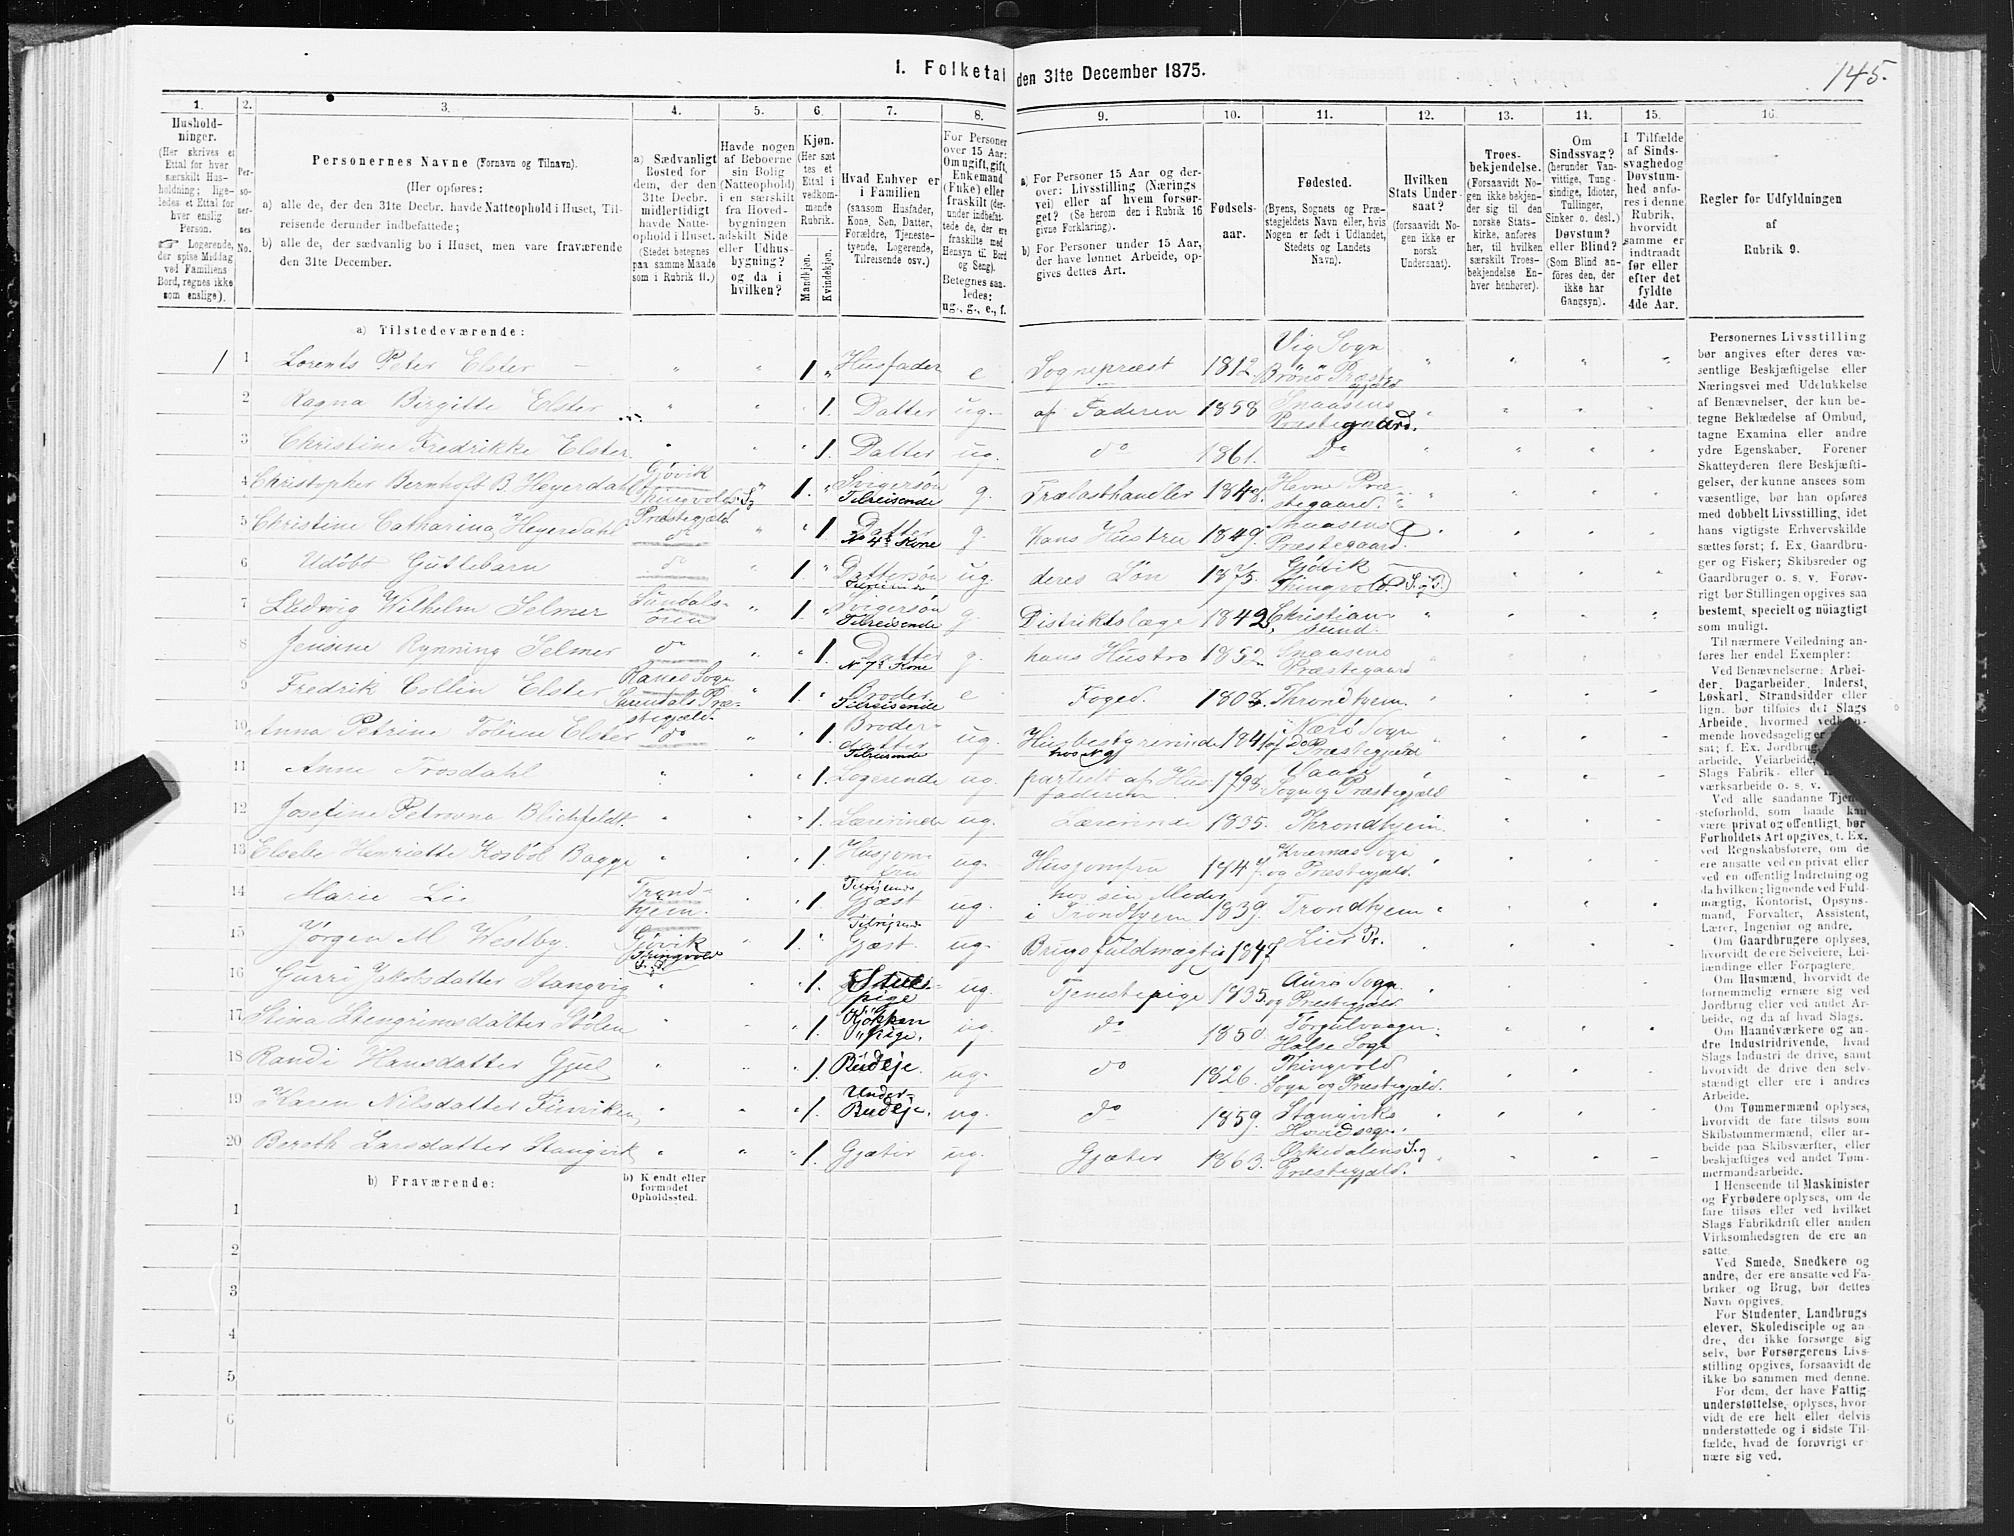 145.
1. Folketal den 31te December 1875.
1. 2. 3. 4. 5. 6. 7. 8. 9. 10. 11. 12. 13. 14. 15. 16.
Hushold-
ninger.
(Her skrives et
Ettal for hver
særskilt Hus-
holdning; lige-
ledes et Ettal for
hver enslig
Person.
☞ Logerende,
der spise Middag
ved Familiens
Bord, regnes ikke
som enslige).
Per-
so-
ner-
nes
No.
Personernes Navne (Fornavn og Tilnavn).
(Her opføres:
a) alle de, der den 31te Decbr. havde Natteophold i Huset, Til-
reisende derunder indbefattede;
b) alle de, der sædvanlig bo i Huset, men vare fraværende
den 31te December.
a) Sædvanligt
Bosted for
dem, der den
31te Decbr.
midlertidigt
havde Natte-
ophold i Huset.
(Stedet betegnes
paa samme Maade
som i Rubrik 11.)
Havde nogen
af Beboerne
sin Bolig
(Natteophold)
i en særskilt
fra Hoved-
bygningen
adskilt Side
eller Udhus-
bygning?
og da i
hvilken?
Kjøn.
(Her sæt
tes et
Ettal i
vedkom-
mende
Rubrik.
Mandkjøn.
Kvindekjøn.
Hvad Enhver er
i Familien
(saasom Husfader,
Kone, Søn, Datter,
Forældre, Tjeneste-
tyende, Logerende,
Tilreisende osv.)
For Personer
over 15 Aar:
Om ugift, gift,
Enkemand
(Enke) eller
fraskilt (der-
under indbefat-
tede de, der ere
fraskilte med
Hensyn til Bord
og Seng).
Betegnes saa-
ledes:
ug., g., e., f.
a) For Personer 15 Aar og der-
over: Livsstilling (Nærings
vei) eller af hvem forsør-
get? (Se herom den i Rubrik 16
givne Forklaring).
b) For Personer under 15 Aar,
der have lønnet Arbeide, op-
gives dettes Art.
Fødsels-
aar.
Fødested.
(Byens, Sognets og Præ-
stegjeldets Navn eller, hvis
Nogen er født i Udlandet,
Stedets og Landets
Navn).
Hvilken
Stats Under-
saat?
(forsaavidt No-
gen ikke er
norsk
Undersaat).
Troes-
bekjendelse.
(Forsaavidt No-
gen ikke bekjen-
der sig til den
norske Stats-
kirke, anføres
her, til hvilken
særskilt Troes-
bekjendelse En-
hver henhører).
Om
Sindssvag?
(herunder Van-
vittige, Tung-
sindige, Idioter,
Tullinger,
Sinker o. desl.)
Døvstum?
eller Blind?
(Som Blind an-
føres den, der
ikke har
Gangsyn).
I Tilfælde
af Sinds-
svaghedog
Døvstum-
hed anfø-
res i denne
Rubrik,
hvorvidt
samme er
indtraadt
før eller
efter det
fyldte
4de Aar.
Regler for Udfyldningen
af
Rubrik 9.
a) Tilstedeværende:
1 1 Lorents Peter Elster 1 Husfader e Sognepræst 1812 Vig Sogn Brönö Præstegjeld
2 Ragna Birgitte Elster 1. Datter ug. af Faderen 1858 Snaasens Præstegaard.
3 Christine Fredrikke Elster 1 Datter ug. do 1861. Do
4 Christopher Bernhoft B. Heyerdahl Gjövik Thingvolds S. og Præstegjæld 1. Svigersön Tilreisende g. Trælasthandler 1848. Hevne Præstegaard.
5 Christine Catharina Heyerdahl do 1. Datter No 4s Kone g. hans Hustru 1849. Snaasens Præstegaard.
6 Udöbt Guttebarn do 1. Dattersön Tilreisende ug. deres Sön 1875. Gjövik Thingvold S. og P.
7 Ludvig Wilhelm Selmer Sundalsören 1 Svigersön Tilreisende g. Distriktslæge 1842 Christiansund.
8 Jensine Rynning Selmer do 1. Datter N 7s Kone g. hans Hustro 1852 Snaasens Præstegaard
9 Fredrik Collin Elster Ranes Sogn Surendals Præstegjæld. 1 Broder Tilreisende e Foged. 1808. Throndhjem.
10 Anna Petrine Tobine Elster do 1 Broderdatter Tilreisende ug. Husbestyrerinde hos N 9 1841 Nærö Sogn og Præstegjeld
11 Anne Trosdahl 1. Logerende ug. partielt af Husfaderen 1798. Vaage Sogn og Præstegjæld
12 Josefine Petrovna Blichfeldt. 1. Lærerinde ug. Lærerinde 1835. Throndhjem.
13 Elsebe Henriette Kosböl Bagge 1. Husjomfru ug. Husjomfru 1847. Kvernæs Sogn og Præstegjæld.
14 Marie Lie Trondhjem. 1. Tilrejsende Gjæst ug. hos sin Moder i Trondhjem 1839. Trondhjem
15 Jörgen M Westby. Gjövik Thingvold S. og P. 1. Tilrejsende Gjæst. ug. Brugsfuldmægtig 1847 Lier Pr.
16 Gurri Jakobsdatter Stangvig 1. Stuepige ug. Tjenestepige 1835. Aure Sogn og Præstegjæld
17 Stina Stengrimsdatter Stölen 1. Kjökkenpige. ug. do 1850. Torgulvaagen Halse Sogn
18 Randi Hansdatter Gjul 1. Budeje. ug. do 1826. Thingvold Sogn og Præstegjæld.
19 Karen Nilsdatter 1. Under-Budeje. ug. do 1859. Stangviks Hovedsogn.
20 Bereth Larsdatter Stangvik 1. Gjæter ug. Gjæter 1863. Orkedalens S. og Præstegjæld.
b) Fraværende:
b) Kjendt eller
formodet
Opholdssted.
1
2
3
4
5
6
Personernes Livsstilling
bør angives efter deres væ-
sentlige Beskjæftigelse eller
Næringsvei med Udelukkelse
af Benævnelser, der kun be-
tegne Beklædelse af Ombud,
tagne Examina eller andre
ydre Egenskaber. Forener
Skatteyderen flere Beskjæfti-
gelser, der kunne ansees som
væsentlige, bør han opføres
med dobbelt Livsstilling, idet
hans vigtigste Erhvervskilde
sættes først; f. Ex. Gaardbru-
ger og Fisker; Skibsreder og
Gaardbruger o. s. v. Forøv-
rigt bør Stillingen opgives saa
bestemt, specielt og nøiagtigt
som muligt.
Til nærmere Veiledning an-
føres her endel Exempler:
Ved Benævnelserne: Arbei-
der, Dagarbeider, Inderst,
Løskarl, Strandsidder eller
lign. bør tilføies det Slags
Arbeide, hvormed vedkom-
mende hovedsageligen
sat; f. Ex. Jordbrug
arbeide, Veiarbeide,
Slags Fabrik- eller
værksarbeide o. s. v.
Ved alle saadanne Tjene-
steforhold, som baade kan
være privat og offentligt, bør
Forholdets Art opgives, t. Ex.
ved Regnskabsførere, om de
ere ansatte ved en privat eller
ved en offentlig Indretning og
da hvilken; lignende ved Fuld-
mægtig, Kontorist, Opsyns-
mand, Forvalter, Assistent,
Lærer, Ingeniør og andre.
Om Gaardbrugere oplyses,
hvorvidt de ere Selveiere, Lei-
lændinge eller Forpagtere.
Om Husmænd, hvorvidt de
fornemmelig ernære sig ved
Jordbrug eller ved andet Ar-
beide, og da af hvad Slags.
Om Haandværkere og an-
dre Industridrivende, hvad
Slags Industri de drive, samt
hvorvidt de drive den selv-
stændigt eller ere i andres
Arbeide.
Om Tømmermænd oplyses,
hvorvidt de fare tilsøs som
Skibstømmermænd, eller ar-
beide paa Skibsværfter, eller
beskjæftiges ved andet Tøm-
mermandsarbeide.
I Henseende til Maskinister
og Fyrbødere oplyses, om de
fare tilsøs eller ved hvilket
Slags Fabrikdrift eller anden
Virksomhedsgren de ere an
satte.
Ved Smede, Snedkere og
andre, der ere ansatte ved Fa-
briker og Brug, bør dettes
Navn opgives.
For Studenter, Landbrugs
elever, Skoledisciple og an-
dre, der ikke forsørge sig
selv, bør Forsørgerens Livs-
stilling opgives, forsaavidt de
ikke bo sammen med denne.
For dem, der have Fattig
understøttelse, oplyses, hvor
vidt de ere helt eller delvis
understøttede og i sidste Til-
fælde, hvad de forøvrigt er-
nære sig ved.